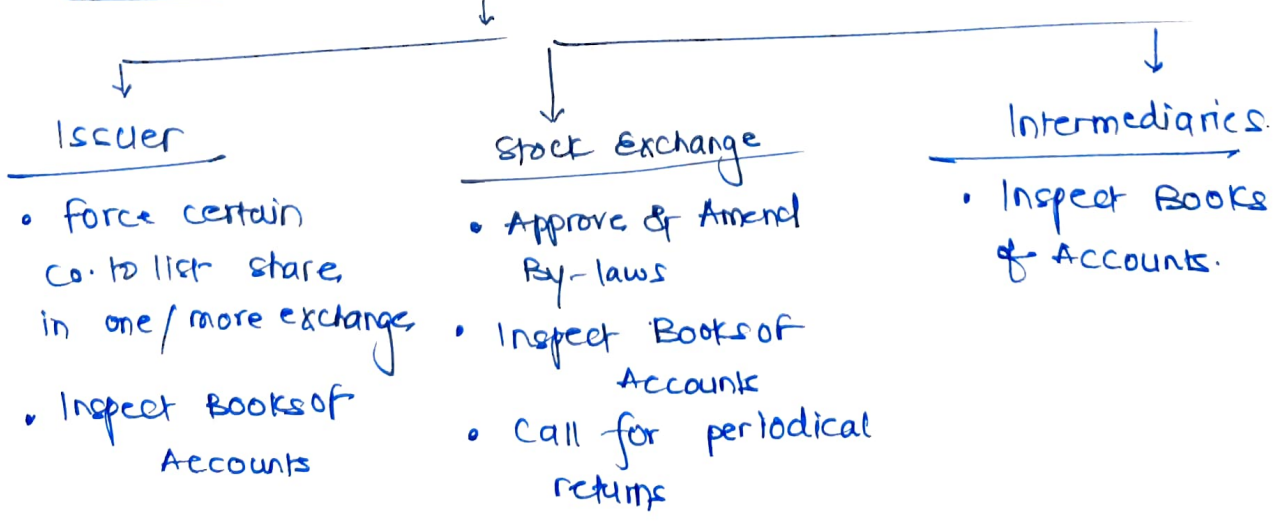 Issuer
• force certain
co. to list share,
in one/more exchange,
• Inspect Books of
Accounts
Stock Exchange
• Approve & Amend
By-laws
• Inspect Books of
Accounts
• Call for periodical
returns
Intermediaries.
• Inspect Books
of Accounts.